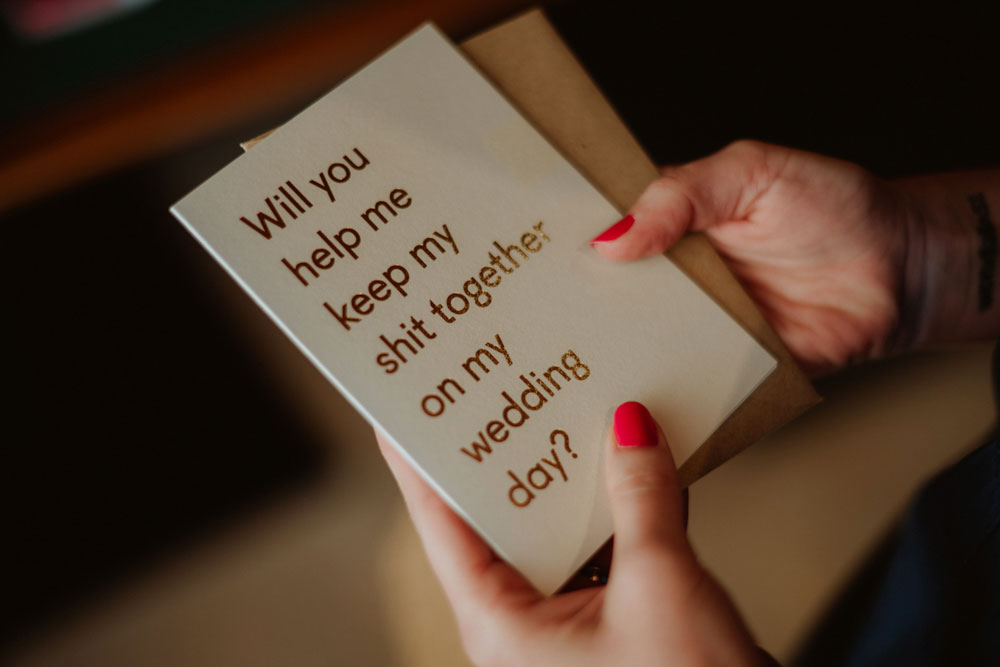 Will you
help me
keep my
shit together
on my
wedding
day?